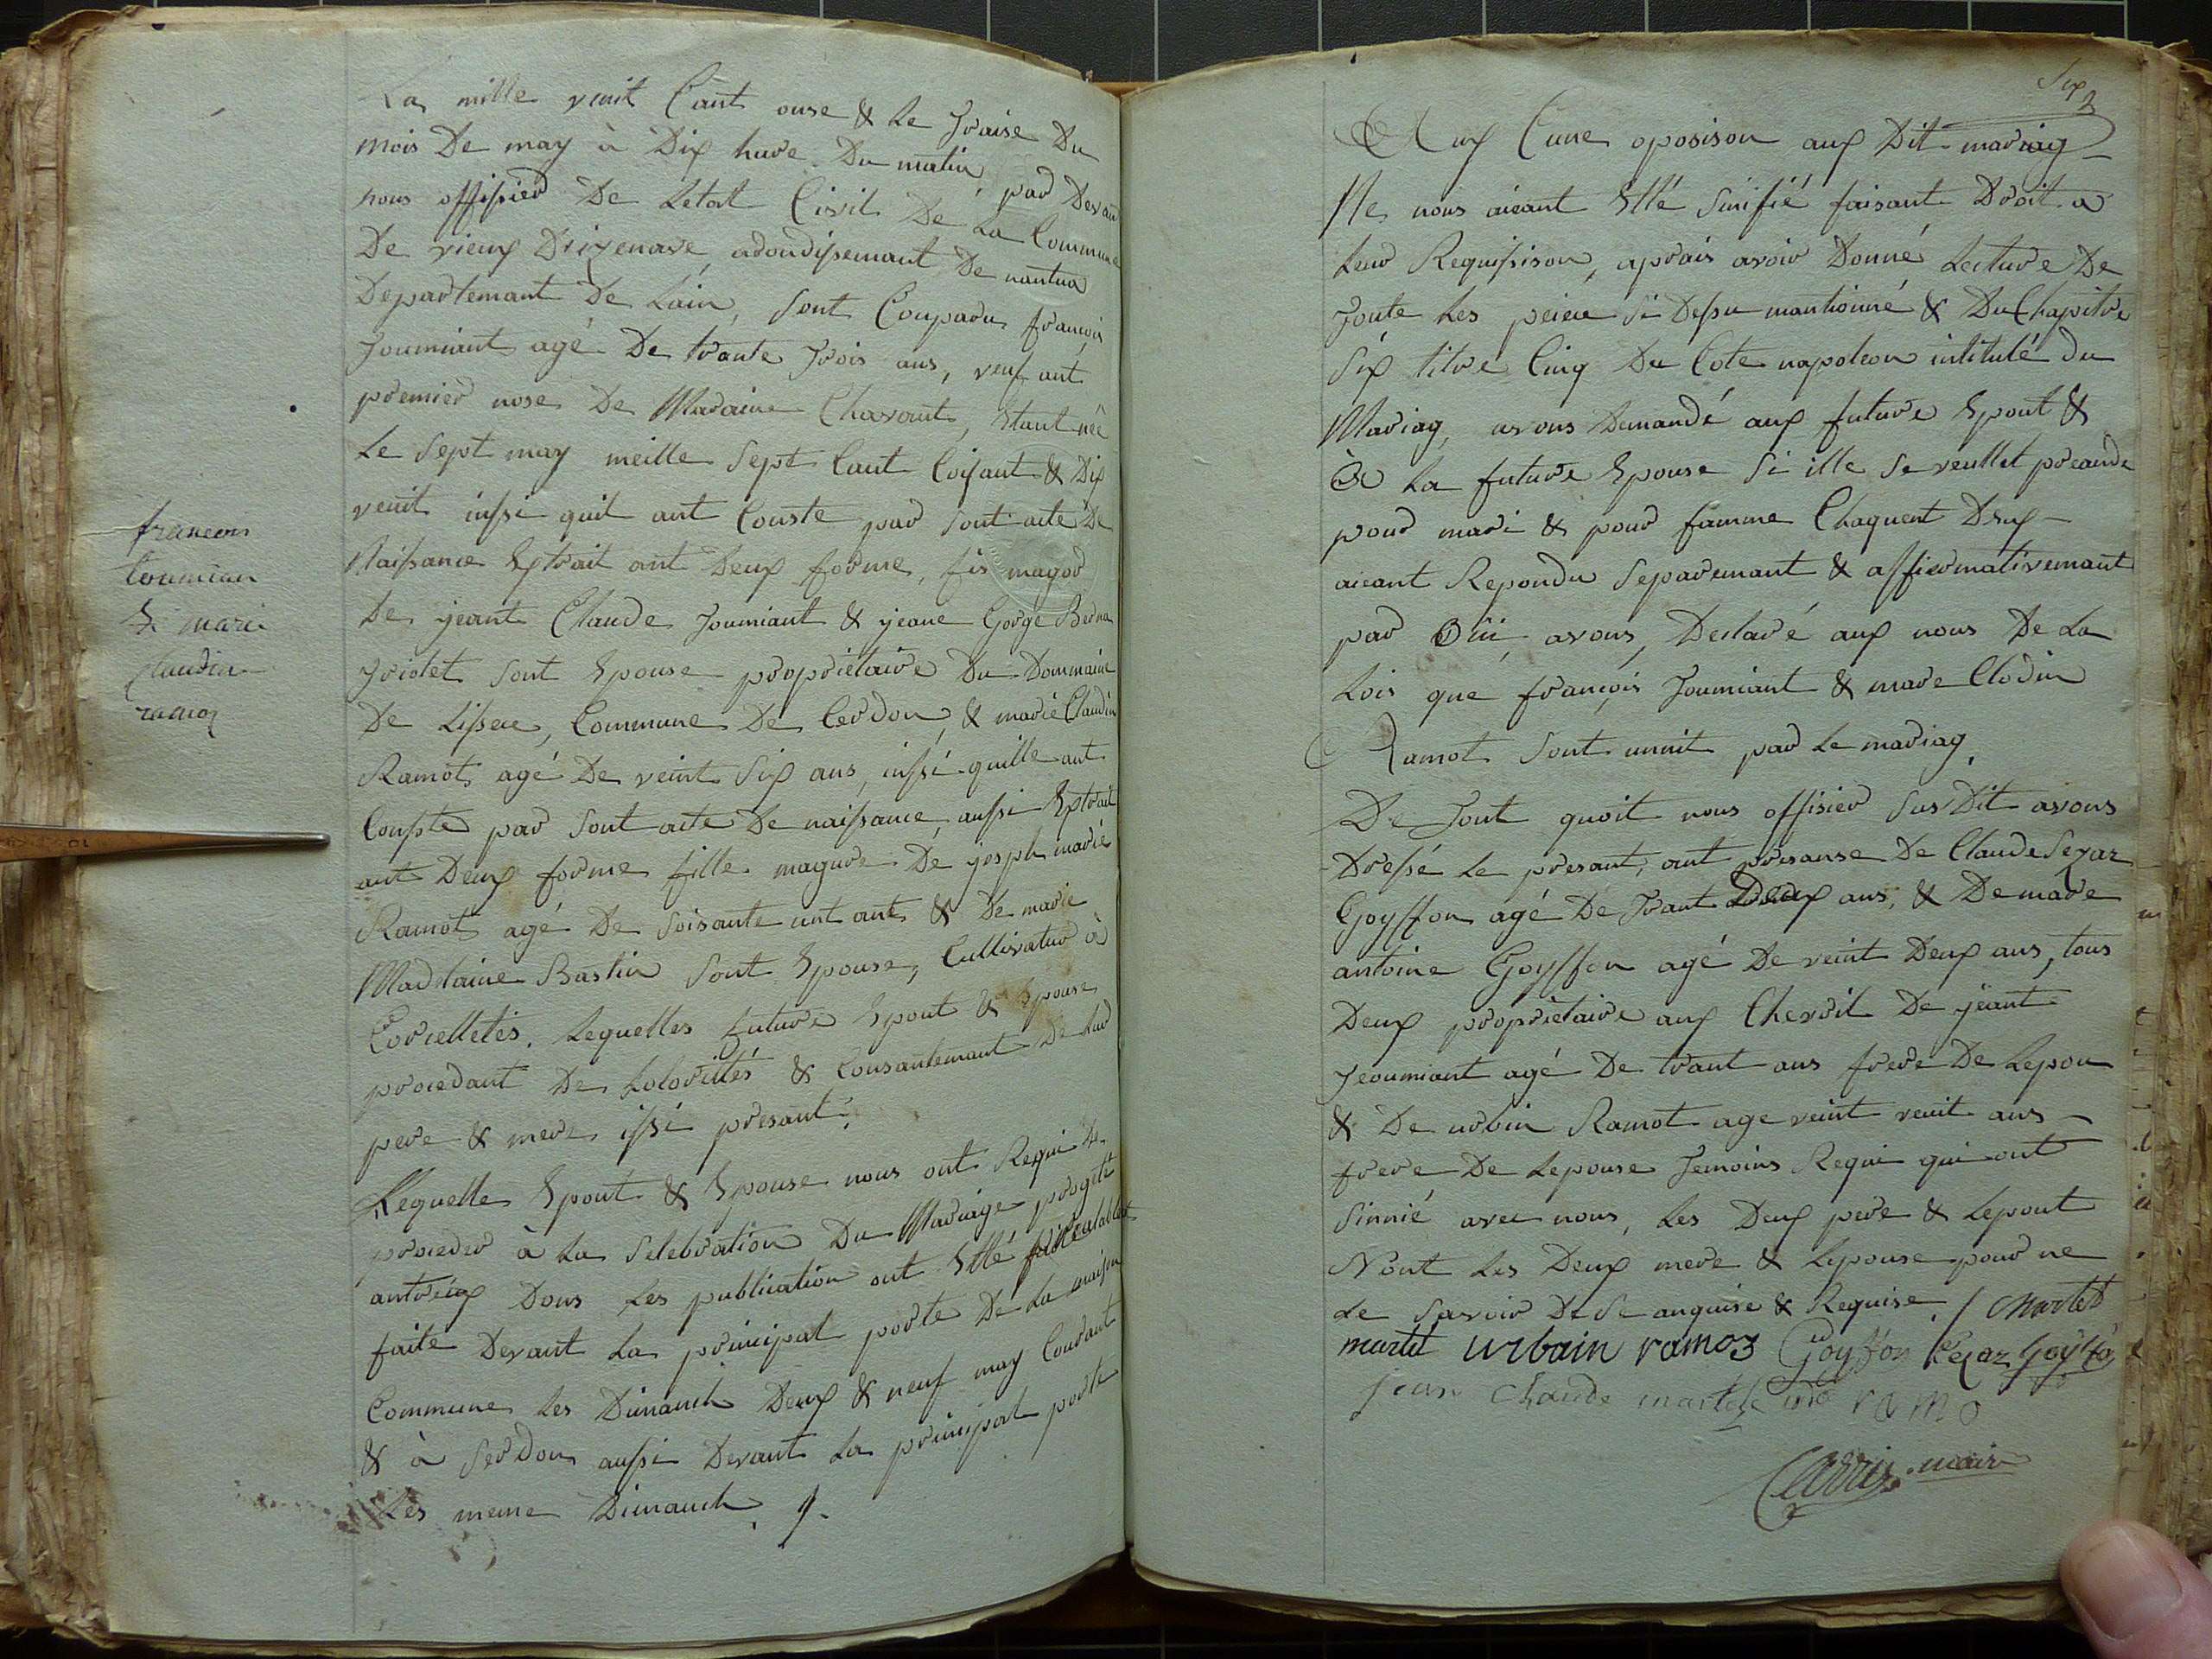 La mille vuit Cant onse & Le Traise Du
mois De may à Dix hure Du matin, par Devan
nous offisier De Letat Civil De La Commune
De vieux Dizenave, arondisemant De nantua
Departemant De Lain, sont Conparu françois
Toumiant agé De trante Trois ans, veuf ant
premier nose De Madaine Chavant, Etant née
Le Sept may meille Sept Cant Soisant & Dix
veuit insi quil ant Conste par sont acte De
Naissance Extrait ant Deux forme, fis magor
De jeant Claude Toumiant & jeane Gorge Berna
Triolet sont Epouse proprietaire Du Dommaine
De Lissere, Commune De Cerdon, & marie Claudin
Ramot, agé De veint Six ans, inssi quille ant
Conste par sont acte De naissance, aussi Extrait
ant Deux forme fille magure De joseph marie
Ramot agé De Soisante unt ant & De marie
Madlaine Bastin sont Epouse, Cultivatur à
Corcelletés. Lequelles future Epout & Epouse
procedant De Lotorittés & Consantemant De Lur
pere & mere issi presant.
Lequelle Epout & Epouse nous ont Requi De
proceder à La Selebration Du Mariage progeté
antreux Dons Les publication ont Etté prealablemt
faite Devant La principal porte De La maison
Commune Les Dimanch Deux & neuf may Courant
& à Serdon aussi Devant La principal porte
Les meme Dimanch.
francois
toumian
& marie
claudin
ramoz
Six
Aux Cune oposison aux Dit mariag
Ne nous aieant Etté sinifié faisant Droit a
Leur Requisison, aprais avoir Donné Lecture De
Toute Les peiece si Dessu mantionné & Du Chapitre
Six titre Cinq Du Cote napoleon intitulé Du
Mariag, avons Demandé aux future Epout &
a La future Epouse Si ille se veullet preande
pour mari & pour famme Chaquent Deux
aieant Repondu separemant & affiermativemant
par Oui, avons, Declaré aux nous De La
Lois que françois Toumiant & mare Clodin
Ramot sont unnit par Le mariag.
De Tout quoit nous offisier sus Dit avons
Dressé Le presant, ant presanse De Claude Sezar
Goyffon agé De Trant Deux ans, & De mare
antoine Goyffon agé De veint Deux ans, tous
Deux proprietaire aux Chevril De jeant
Jeoumiant agé De trant ans frere De Lepou
& De urbin Ramot age veint veuit ans
frere De Lepouse Temoins Requi qui ont
Sinnié avec nous, Les Deux pere & Lepout
Nont Les Deux mere & Lepouse pour ne
Le savoir De se anquise & Requise. / Martet
martet urbain ramoz Goyffon Cezar Goyffon
jean Claude martet ramo
maire